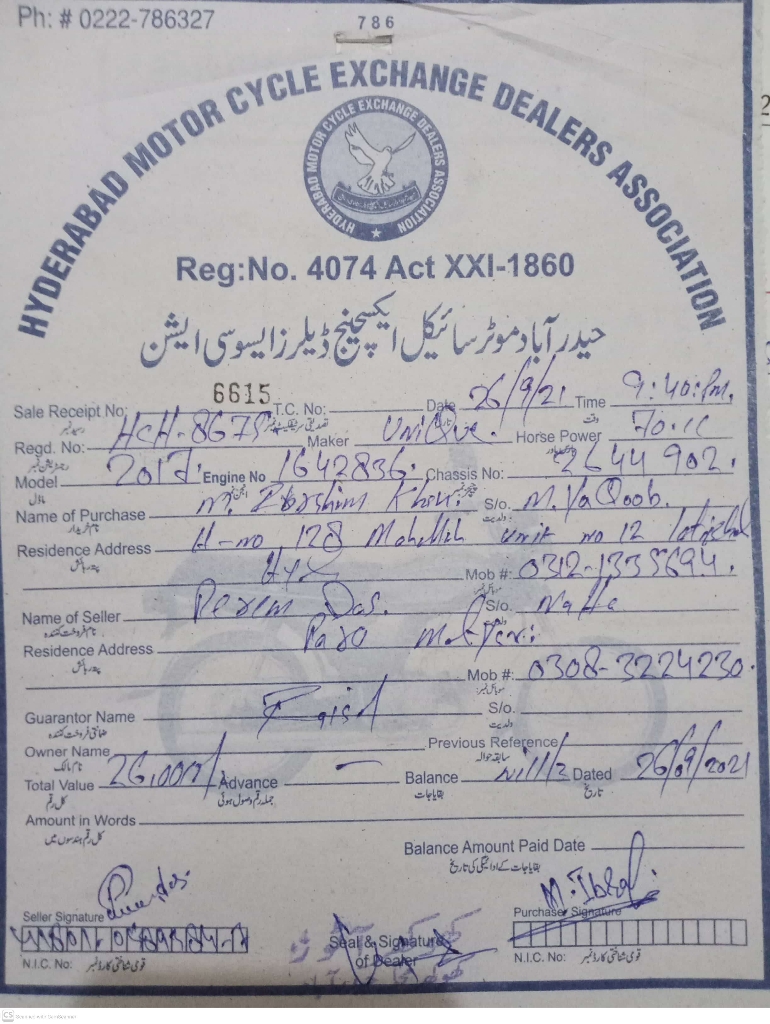 Ph: # 0222-786327
786
HYDERABAD MOTOR CYCLE EXCHANGE DEALERS ASSOCIATION
HYDERABAD MOTOR CYCLE EXCHANGE DEALERS ASSOCIATION
Reg:No. 4074 Act XXI-1860
حیدرآباد موٹر سائیکل ایکسچینج ڈیلرز ایسوسی ایشن
Sale Receipt No: 6615 T.C. No: Date 26/9/21 Time 9:40:Pm.
رسید نمبر تصدیقی سرٹیفکیٹ نمبر وقت
Regd. No: HCH-8675 Maker UniQue. Horse Power 70.cc
رجسٹریشن نمبر
Model 2017. Engine No 1642836. Chassis No: 2644902.
ماڈل انجن نمبر
Name of Purchase M. Ibrahim Khan. S/o. M. YaQoob.
نام خریدار ولدیت
Residence Address H-no 128 Mohallah unit no 12
پتہ رہائش
Hyd Mob #: 0312-1335694.
موبائل نمبر
Name of Seller Perem Das. S/o.
نام فروخت کنندہ ولدیت
Residence Address Para
پتہ رہائش
Mob #: 0308-3224230.
موبائل نمبر
Guarantor Name S/o.
ضمانتی فروخت کنندہ ولدیت
Owner Name Previous Reference
نام مالک سابقہ حوالہ
Total Value 26,000/ Advance — Balance Dated 26/09/2021
کل رقم جملہ رقم وصول ہوئی بقایاجات تاریخ
Amount in Words
کل رقم ہندسوں میں
Balance Amount Paid Date
بقایاجات کے ادائیگی کی تاریخ
Seller Signature Seal & Signature of Dealer Purchaser Signature
N.I.C. No: قومی شناختی کارڈ نمبر N.I.C. No: قومی شناختی کارڈ نمبر
CS Scanned with CamScanner